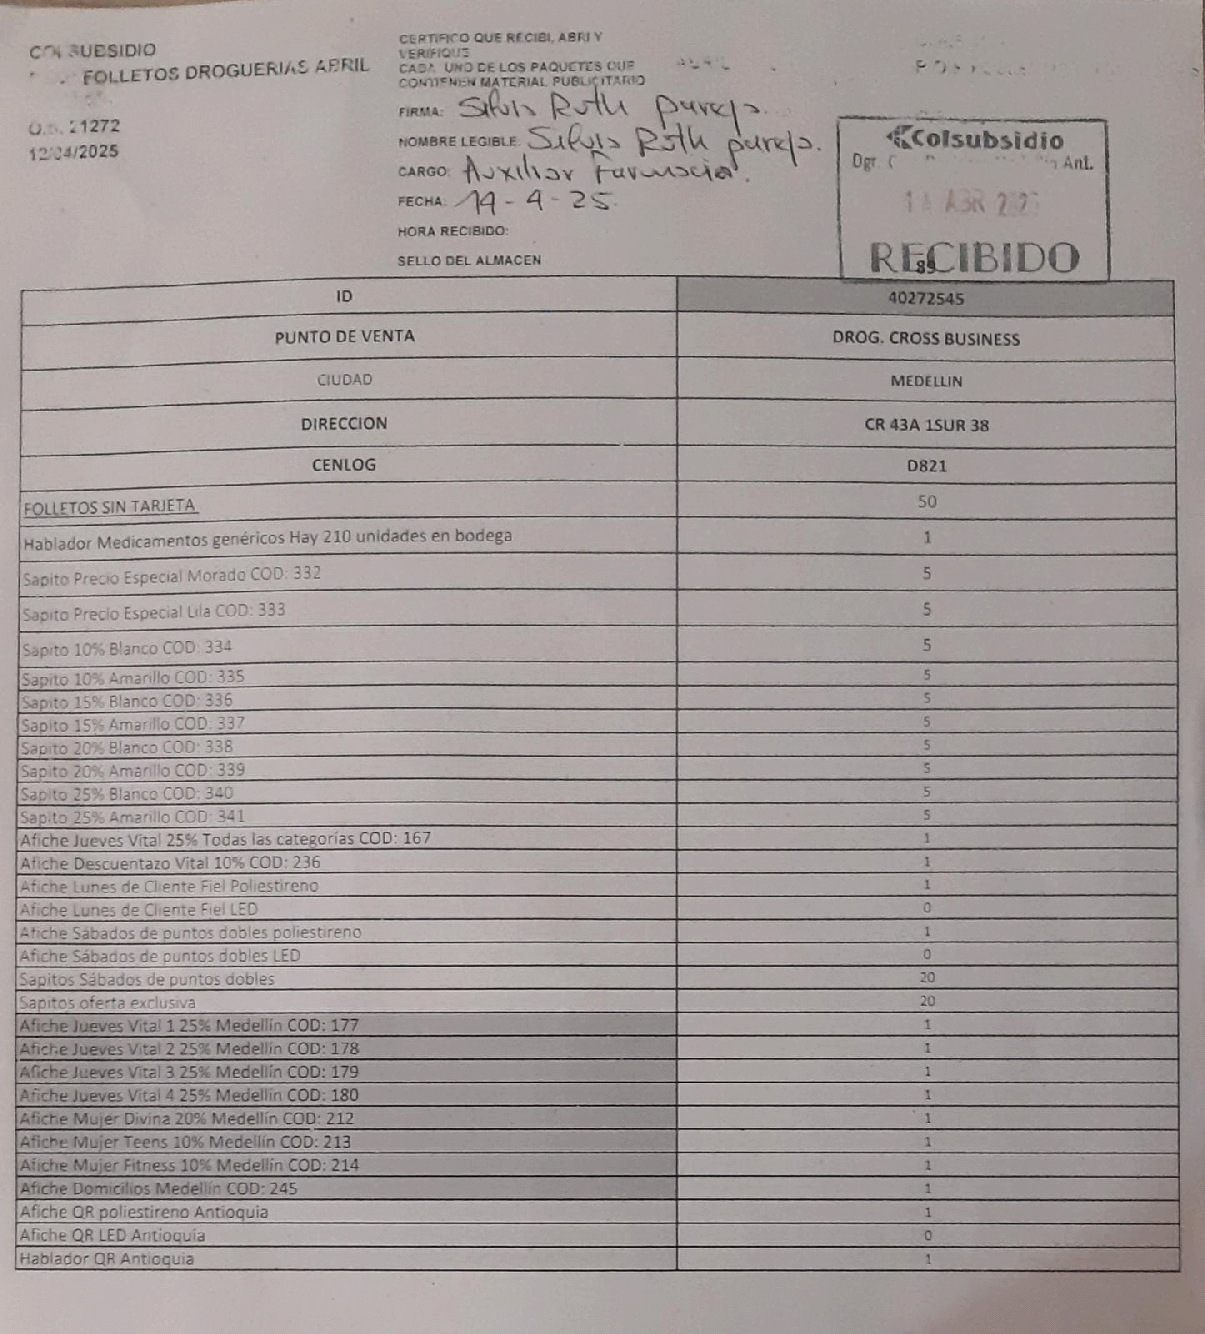 COLSUBSIDIO
FOLLETOS DROGUERIAS ABRIL
O.S. 21272
12/04/2025
CERTIFICO QUE RECIBI, ABRI Y
VERIFIQUE
CADA UNO DE LOS PAQUETES QUE
CONTIENEN MATERIAL PUBLICITARIO
FIRMA: Silvia Ruth pareja.
NOMBRE LEGIBLE: Silvia Ruth pareja.
CARGO: Auxiliar Farmacia.
FECHA: 14-4-25
HORA RECIBIDO:
SELLO DEL ALMACEN
Colsubsidio
Dgr. Ant.
ABR
RECIBIDO
89
ID 40272545
PUNTO DE VENTA DROG. CROSS BUSINESS
CIUDAD MEDELLIN
DIRECCION CR 43A 1SUR 38
CENLOG D821
FOLLETOS SIN TARJETA 50
Hablador Medicamentos genéricos Hay 210 unidades en bodega 1
Sapito Precio Especial Morado COD: 332 5
Sapito Precio Especial Lila COD: 333 5
Sapito 10% Blanco COD: 334 5
Sapito 10% Amarillo COD: 335 5
Sapito 15% Blanco COD: 336 5
Sapito 15% Amarillo COD: 337 5
Sapito 20% Blanco COD: 338 5
Sapito 20% Amarillo COD: 339 5
Sapito 25% Blanco COD: 340 5
Sapito 25% Amarillo COD: 341 5
Afiche Jueves Vital 25% Todas las categorías COD: 167 1
Afiche Descuentazo Vital 10% COD: 236 1
Afiche Lunes de Cliente Fiel Poliestireno 1
Afiche Lunes de Cliente Fiel LED 0
Afiche Sábados de puntos dobles poliestireno 1
Afiche Sábados de puntos dobles LED 0
Sapitos Sábados de puntos dobles 20
Sapitos oferta exclusiva 20
Afiche Jueves Vital 1 25% Medellín COD: 177 1
Afiche Jueves Vital 2 25% Medellín COD: 178 1
Afiche Jueves Vital 3 25% Medellín COD: 179 1
Afiche Jueves Vital 4 25% Medellín COD: 180 1
Afiche Mujer Divina 20% Medellín COD: 212 1
Afiche Mujer Teens 10% Medellín COD: 213 1
Afiche Mujer Fitness 10% Medellín COD: 214 1
Afiche Domicilios Medellín COD: 245 1
Afiche QR poliestireno Antioquia 1
Afiche QR LED Antioquia 0
Hablador QR Antioquia 1